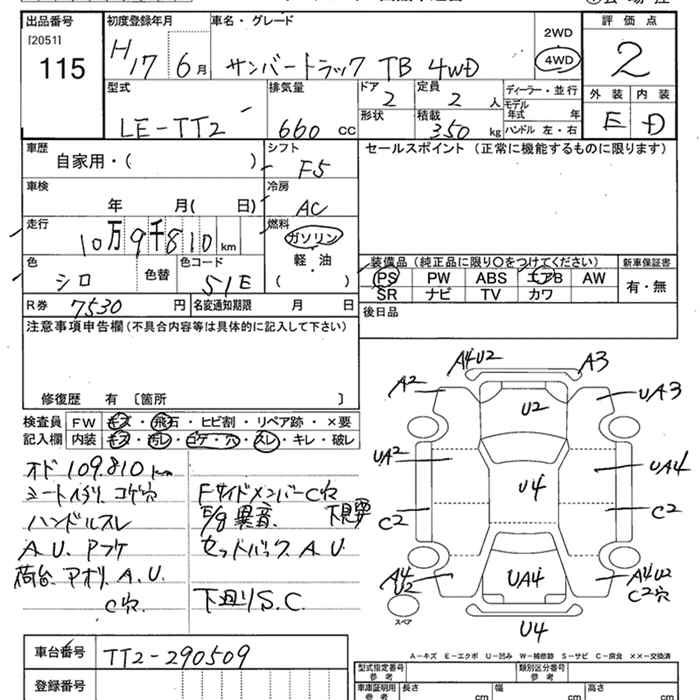 出品番号
[2051]
115
初度登録年月
H17 6月
車名・グレード
サンバートラック TB 4WD
2WD
4WD
評価点
2
型式
LE-TT2
排気量
660 cc
ドア
2
定員
2 人
形状
積載
350 kg
ディーラー・並行
モデル年式 年
ハンドル 左・右
外装
内装
E
D
車歴
自家用・( )
シフト
F5
セールスポイント (正常に機能するものに限ります)
車検
年 月( 日)
冷房
AC
走行
10万9千810 km
燃料
ガソリン
軽・油
( )
色
シロ
色替
色コード
51E
装備品 (純正品に限り○をつけてください)
新車保証書
PS PW ABS エアB AW
SR ナビ TV カワ
有・無
R券 7530 円
名変通知期限 月 日
後日品
注意事項申告欄(不具合内容等は具体的に記入して下さい)
修復歴 有 〔箇所 〕
検査員
記入欄
FW キズ・飛石・ヒビ割・リペア跡・×要
内装 キズ・汚レ・コゲ・穴・スレ・キレ・破レ
オド 109,810 km
シートヘタリ コゲ穴
ハンドルスレ
A.U. Pツケ
荷台 アオリ A.U.
C穴
Fサイドメンバー C穴
E/g 異音 下見要
セットバック A.U
下廻りS.C
A4U2
A3
A2
UA3
U2
UA2
U4
UA4
C2
C2
A4
U2
UA4
A4U2
C2穴
U4
スペア
A-キズ E-エクボ U-凹み W-補修跡 S-サビ C-腐食 ××-交換済
車台番号
TT2-290509
登録番号
型式指定番号
参考
類別区分番号
参考
車庫証明用
参考
長さ cm
幅 cm
高さ cm